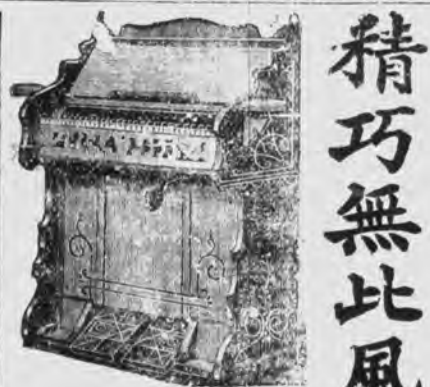 精巧無此風